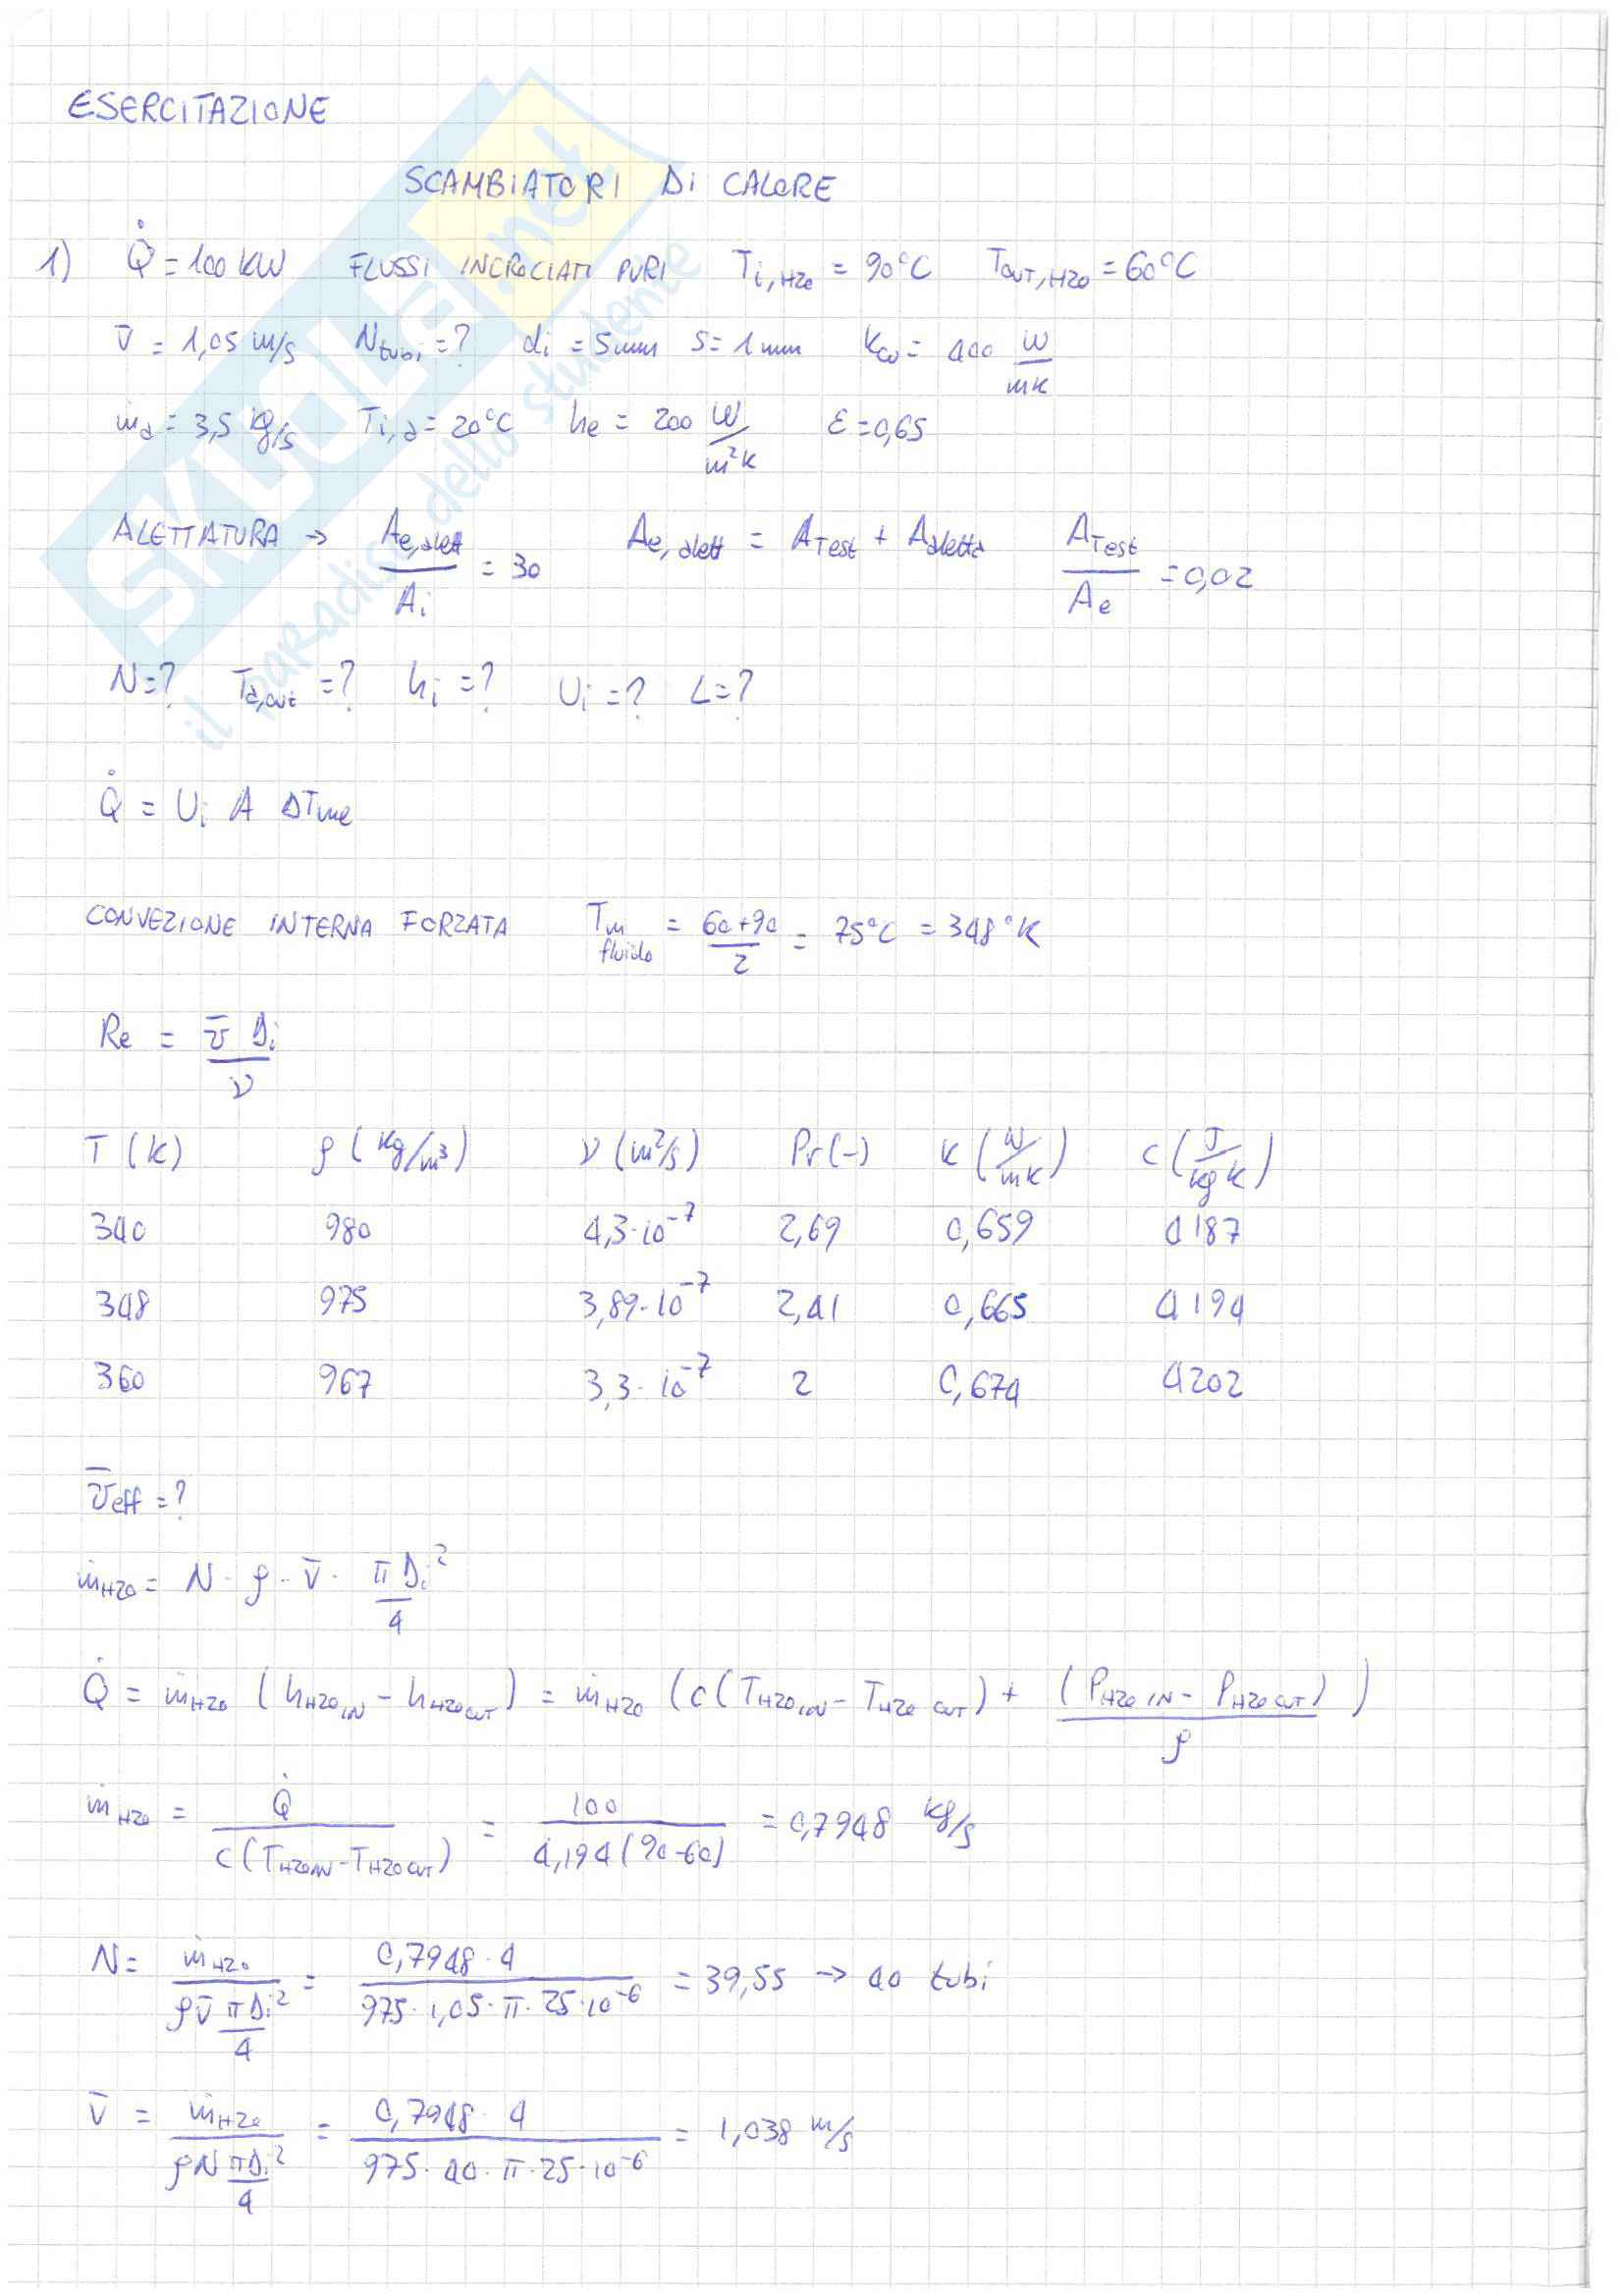 ESERCITAZIONE
SCAMBIATORI DI CALORE
1) Q̇ = 100 KW FLUSSI INCROCIATI PURI T_i,H2O = 90°C T_OUT,H2O = 60°C
v̄ = 1,05 m/s N_tubi = ? di = 5mm s = 1mm K_cu = 400 W/mK
ṁ_a = 3,5 kg/s T_i,a = 20°C h_e = 200 W/m²K ε = 0,65
ALETTATURA → A_e,alett / A_i = 30 A_e,alett = A_Test + A_aletta A_Test / A_e = 0,02
N = ? T_a,out = ? h_i = ? U_i = ? L = ?
Q̇ = U_i A ΔT_me
CONVEZIONE INTERNA FORZATA T_m fluido = (60+90)/2 = 75°C = 348°K
Re = v̄ D_i / ν
T (K) ρ (Kg/m³) ν (m²/s) Pr (-) K (W/mK) c (J/kg K)
340 980 4,3·10⁻⁷ 2,69 0,659 4187
348 975 3,89·10⁻⁷ 2,41 0,665 4194
360 967 3,3·10⁻⁷ 2 0,674 4202
v̄_eff = ?
ṁ_H2O = N · ρ · v̄ · πD_i²/4
Q̇ = ṁ_H2O (h_H2O IN - h_H2O OUT) = ṁ_H2O (c (T_H2O IN - T_H2O OUT) + (P_H2O IN - P_H2O OUT)/ρ)
ṁ_H2O = Q̇ / c(T_H2O IN - T_H2O OUT) = 100 / 4,194(90-60) = 0,7948 kg/s
N = ṁ_H2O / (ρ v̄ πD_i²/4) = 0,7948·4 / (975·1,05·π·25·10⁻⁶) = 39,55 → 40 tubi
v̄ = ṁ_H2O / (ρ N πD_i²/4) = 0,7948·4 / (975·40·π·25·10⁻⁶) = 1,038 m/s
SKUOLA.net
il paradiso dello studente